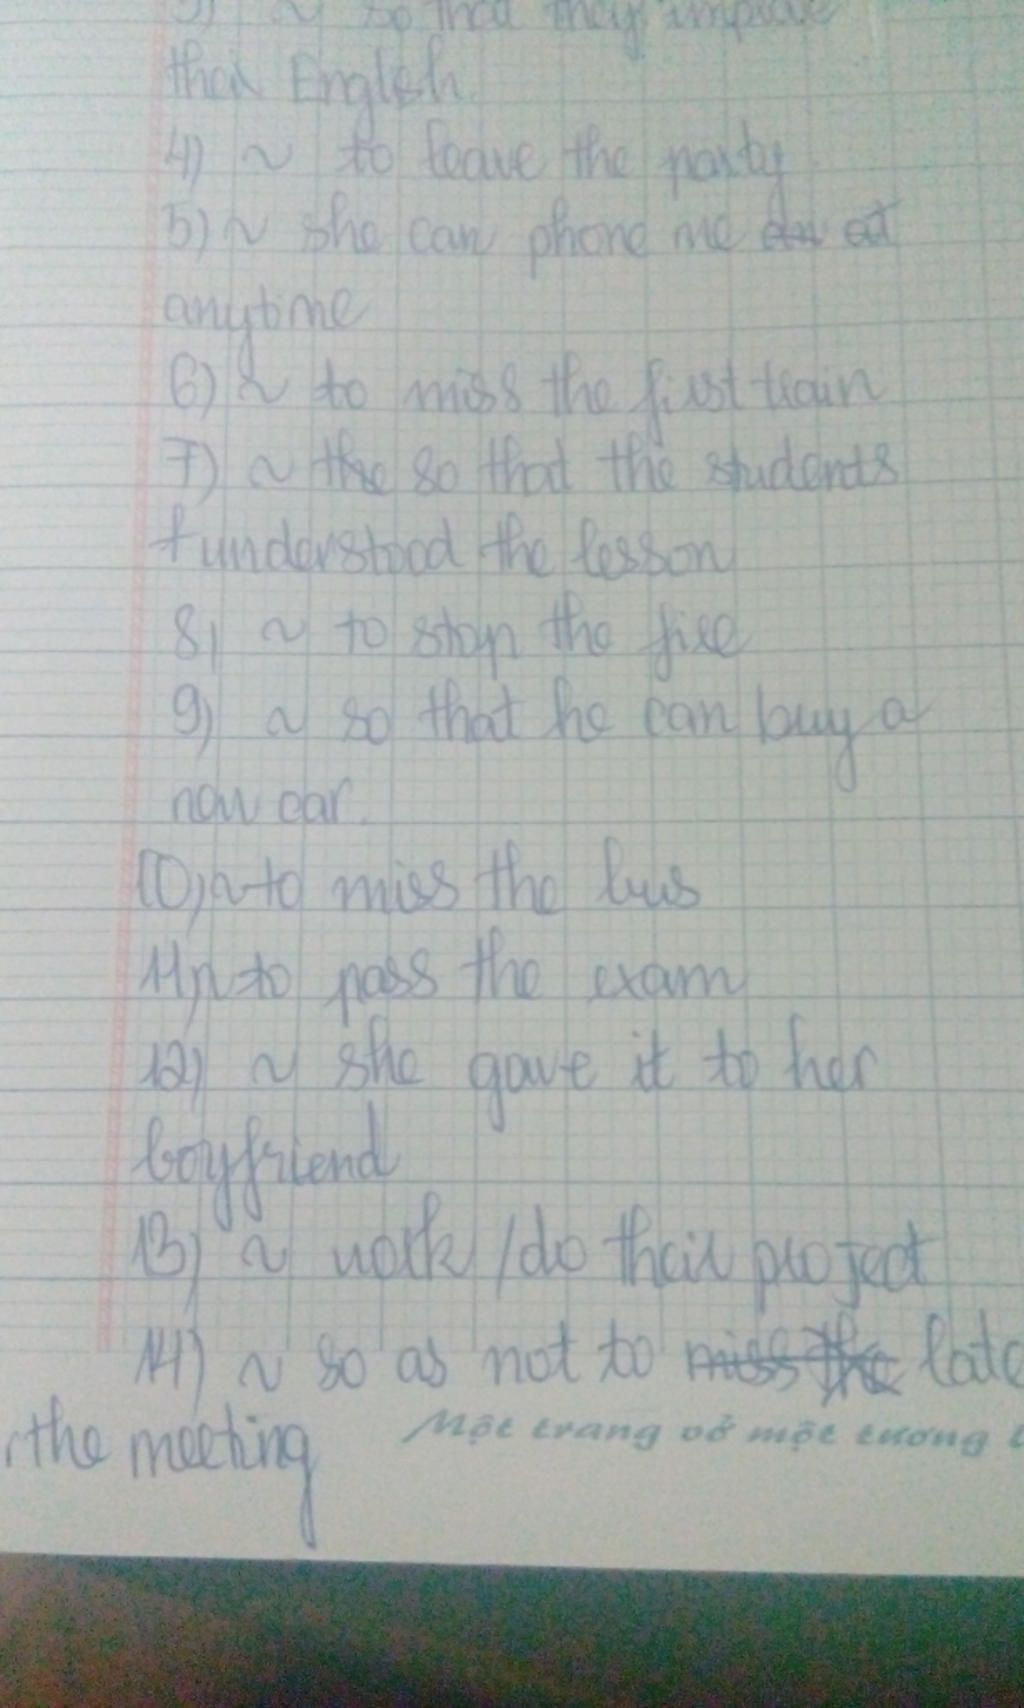 3) ~ so that they improve
their English.
4) ~ to leave the party
5) ~ she can phone me at
anytime
6) ~ to miss the first train
7) ~ the so that the students
understood the lesson
8) ~ to stop the fire
9) ~ so that he can buy a
new car.
10) ~ to miss the bus
11) ~ to pass the exam
12) ~ she gave it to her
boyfriend
13) ~ work / do their project
14) ~ so as not to miss the late
the meeting
Một trang vở một tương